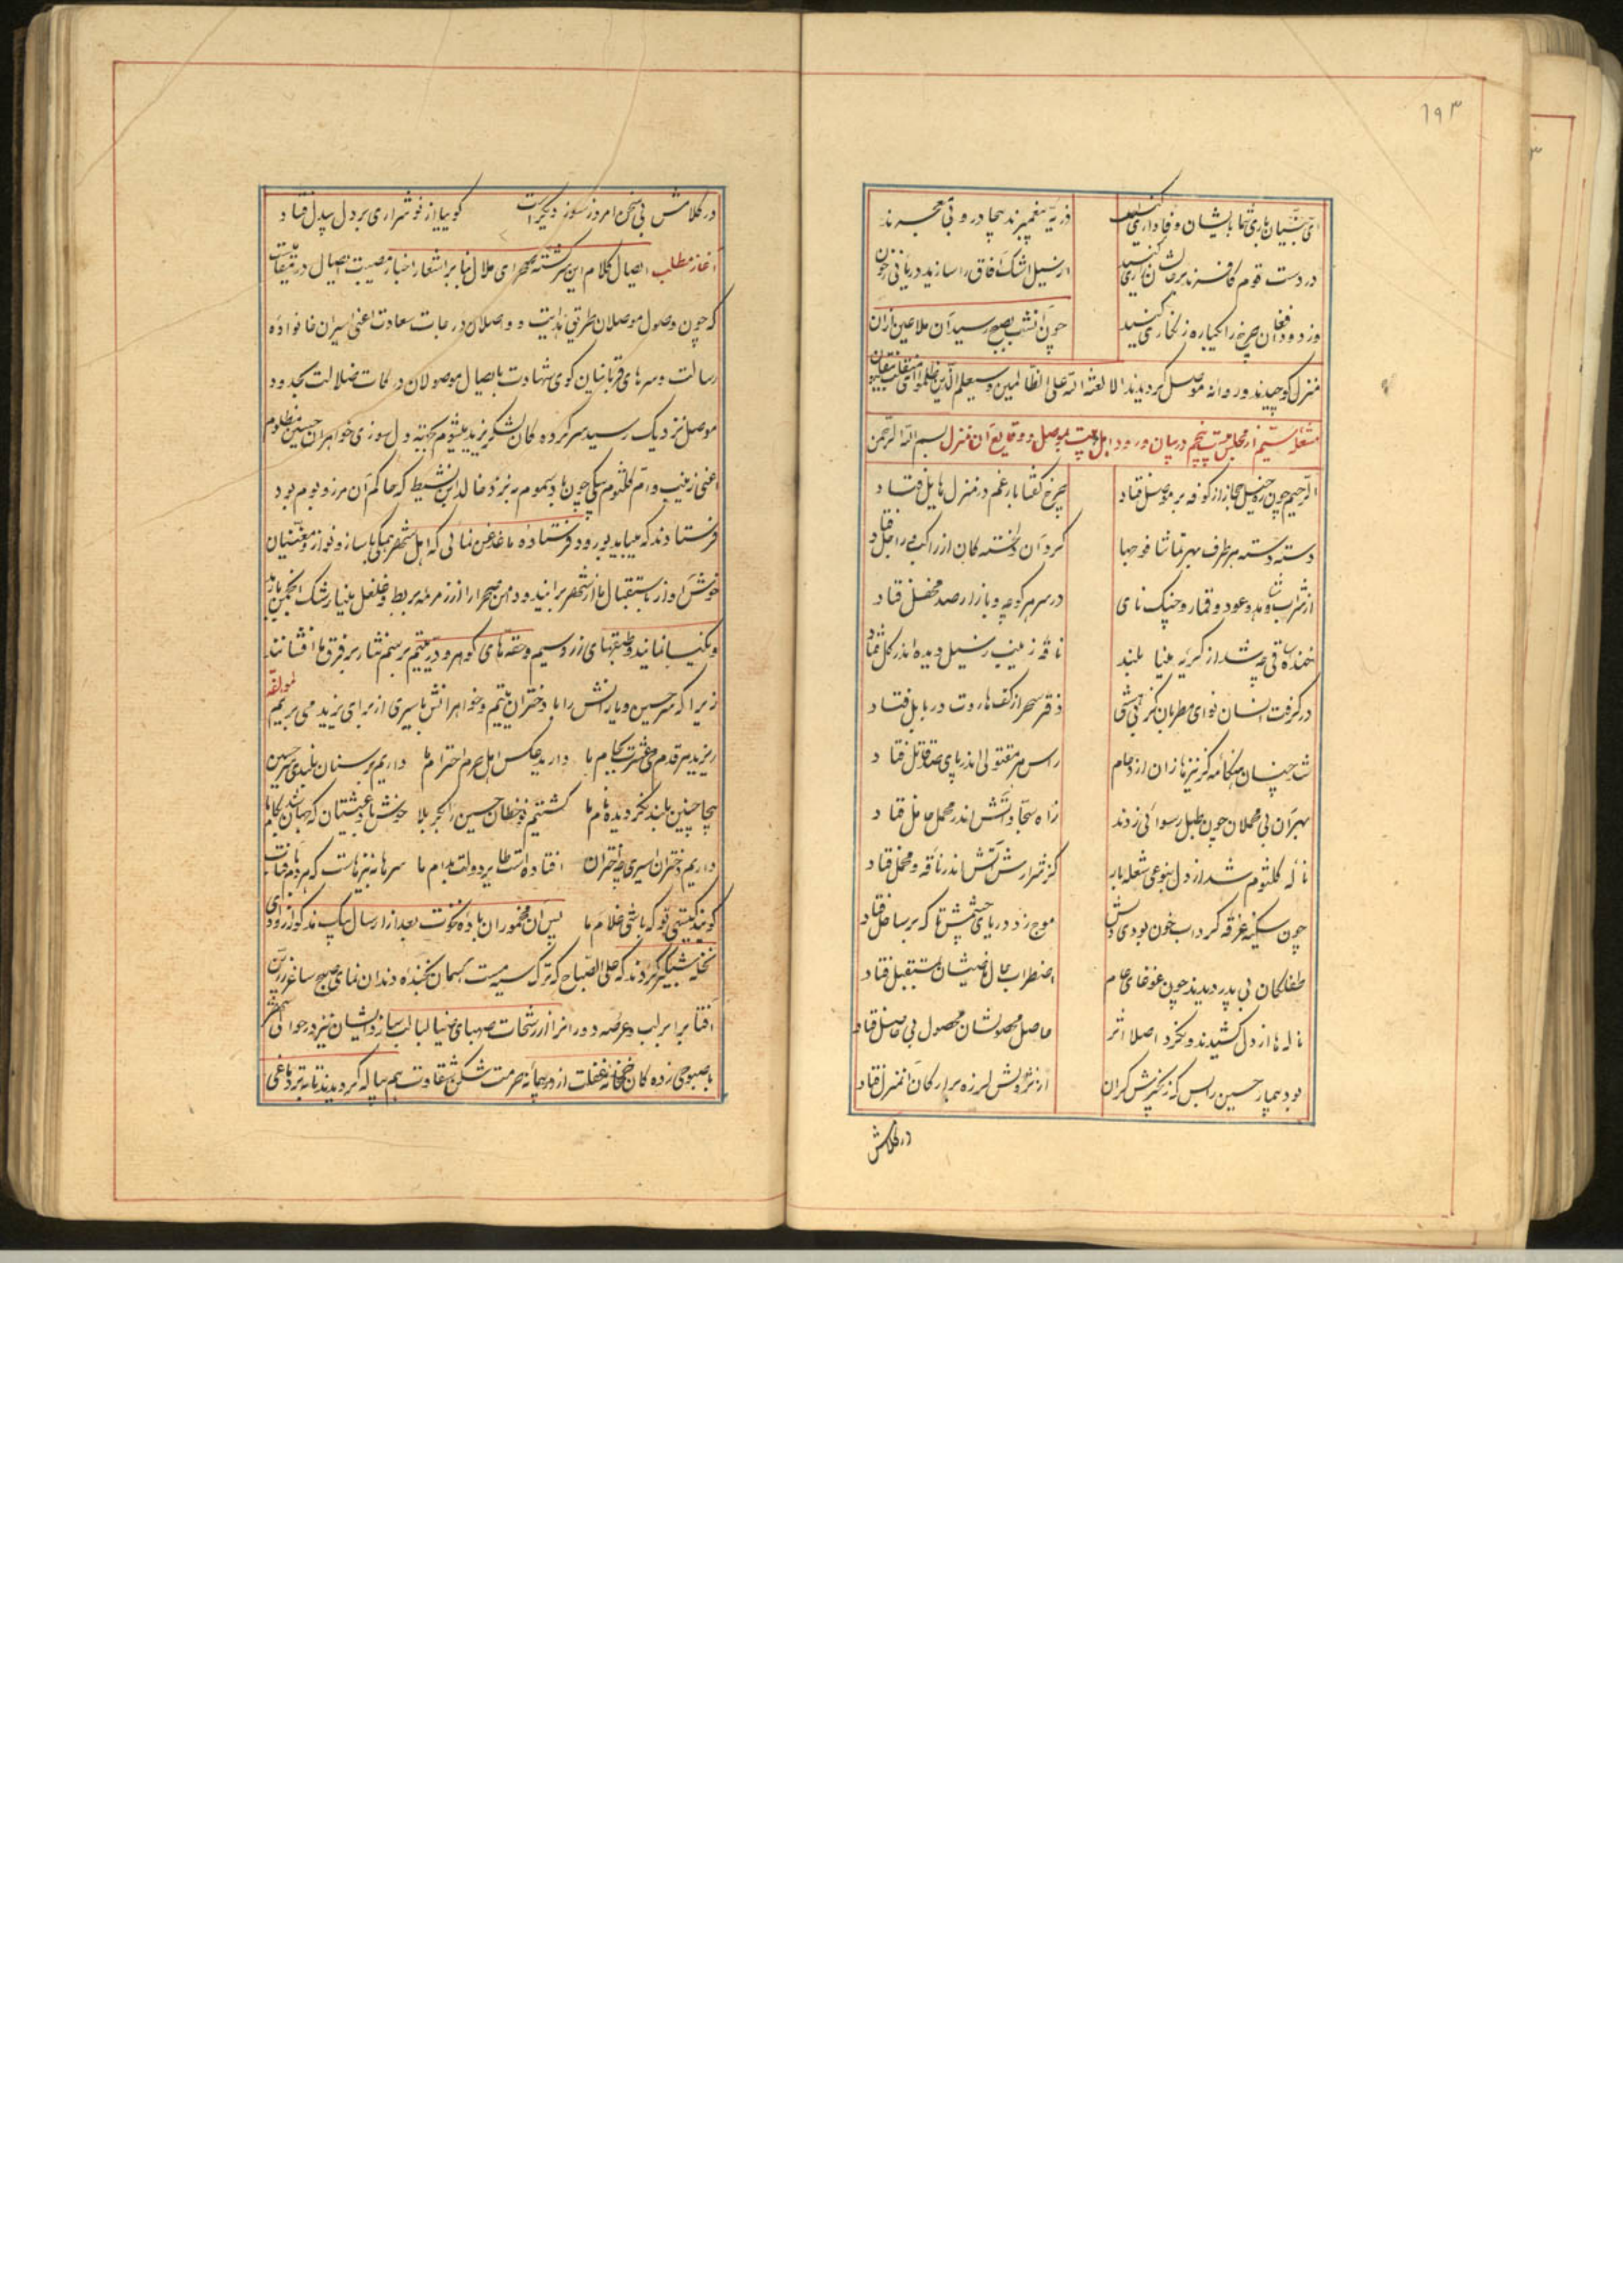 ۱۹۳
ای شیعیان یاری نما با ایشان وفاداری کنید ذریه پیغمبرند بیچادر و بی معجرند
در دست قوم کافرند بر حالشان زاری کنید از سیل اشک آفاق را سازید دریائی ز خون
وز دود افغان چرخ را یکباره زنگاری کنید چون آنشب بصبح رسید آن ملاعین ازان
منزل کوچیدند و روانه موصل گردیدند الا لعنة الله علی الظالمین و سیعلم الذین ظلموا ای منقلب ینقلبون
از مجلس بیست پنجم در بیان ورود اهل بیت بموصل و وقایع آن منزل بسم الله الرحمن
الرحیم چون ره خیل حجاز از کوفه بر موصل فتاد چرخ گفتا بار غم در منزل هایل فتاد
دسته دسته هر طرف بهر تماشا فوجها گرد آن دلخسته کان از راکب و راجل فتاد
از شراب و شاهد و عود و قمار و چنگ نای در سر هر کوچه و بازار صد محفل فتاد
خنده ساقی چه شد از گریه مینا بلند ناقه زینب ز سیل دیده اندر گل فتاد
در گرفت انسان نوای مطربان کز بی هشی دفتر سحر از کف هاروت در بابل فتاد
شد چنان هنگامه کز نیزها زان ازدحام راس هر مقتولی اندر پای صد قاتل فتاد
بهر آن بی محملان چون طبل رسوائی زدند ز آه سجاد آتش اندر محمل حامل فتاد
ناله کلثوم شد از دل بنوعی شعله بار کز شرارش آتش اندر ناقه و محمل فتاد
چون سکینه غرقه گرداب خون بودی دلش موج زد دریای چشمش تا که بر ساحل فتاد
طفلکان بی پدر دیدند چون غوغای عام اضطراب حال ماضیشان بمستقبل فتاد
ناله ها از دل کشیدند و نکرد اصلا اثر حاصل محصولشان محصول بی حاصل فتاد
بود بیمار حسین را بس که زنجیرش گران لرزه بر ارکان آنمنزل فتاد
در کلامش
در کلامش بی سخن امروز سوز دیگر است گوییا از نو شراری بر دل بیدل فتاد
آغاز مطلب ایصال کلام این سرگشته صحرای ملال بنابر اشعار اخبار مصیبت اتصال در شقاوت
که چون وصول موصلان طریق هدایت و واصلان درجات سعادت اعنی اسیران خانواده
رسالت و سرهای قربانیان کوی شهادت بایصال موصولان درکات ضلالت بحدود
موصل نزدیک رسید سرکرده کان لشکر یزید میشوم بجهة دل سوزی خواهران حسین مظلوم
اعنی زینب و ام کلثوم پیکی چون باد سموم به نزد خالد ابن نشیط که حاکم آن مرز و بوم بود
فرستادند که میباید بورود فرستاده ما غدغن نمائی که اهل شهر همگی با ساز و نواز و مغنیان
خوش آواز باستقبال ما از شهر برایند و دامن صحرا را از زمزمه بربط و غلغل مینا رشک انجمن
و نکیسا نمایند و طبقهای زر و سیم و حقه های گوهر و در یتیم برسم نثار بر فرق ما افشانند
زیرا که سر حسین و یارانش را با دختران یتیم و خواهرانش باسیری از برای یزید می بریم لمولفه
ریزید بر قدم می عشرت بجام ما دارید عکس اهل حرم احترام ما داریم بر سنان بلندی سر حسین
بیجا چنین بلند نگردیده نام ما گشتیم کربلا خوش باد عیشتان که جهان شد بکام ما
داریم دختران اسیری چه اختران افتاده است طایر دولت بدام ما سرها به نیزهاست که هر دم بافتاب
گویند کیستی تو که باشی غلام ما پس آن مخموران باده نخوت بعد از ارسال پیک مذکور
شبگیر کردند که علی الصباح که ترک سیه مست آسمان بخنده دندان نمای صبح ساغر زرین
آفتاب را بر لب و عرصه دوران را از رشحات صهبای ضیا لبالب سازد ایشان نیز در حوالی
با صبوحی زده کان خمخانه غفلت از در پیمانه حرمت شکن شقاوت هم پیاله گردیدند تا به تر دماغی